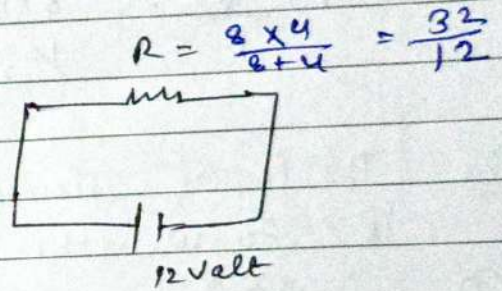 R = 8 × 4 / 8 + 4 = 32 / 12
12 Valt